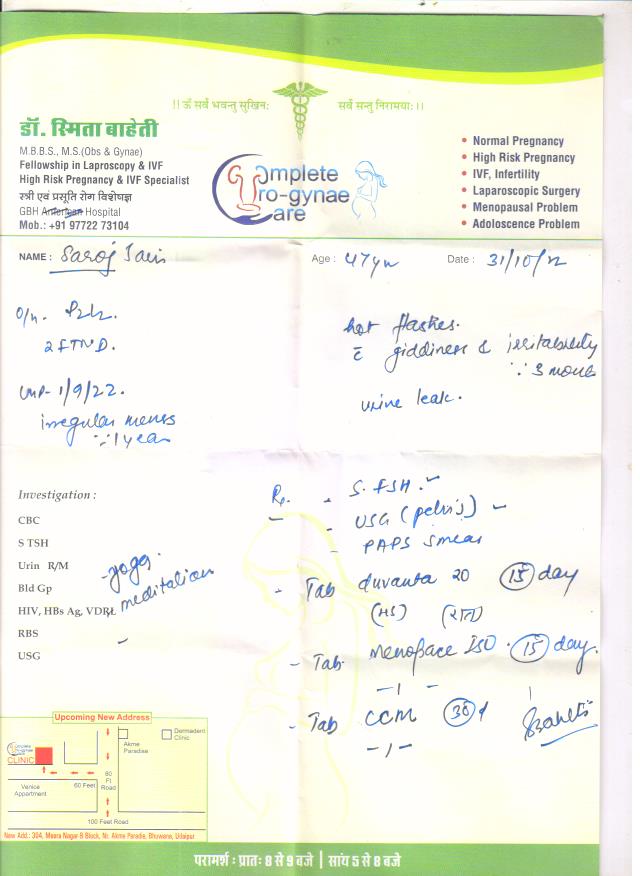 ।। ॐ सर्वे भवन्तु सुखिनः सर्वे सन्तु निरामयाः ।।
डॉ. स्मिता बाहेती
M.B.B.S., M.S.(Obs & Gynae)
Fellowship in Laproscopy & IVF
High Risk Pregnancy & IVF Specialist
स्त्री एवं प्रसूति रोग विशेषज्ञ
GBH American Hospital
Mob.: +91 97722 73104
Complete
Uro-gynae
Care
• Normal Pregnancy
• High Risk Pregnancy
• IVF, Infertility
• Laparoscopic Surgery
• Menopausal Problem
• Adoloscence Problem
NAME : Saroj Jain Age : 47yr Date : 31/10/22
O/H. P2L2.
2 FTND.
LMP- 1/9/22.
irregular menses
∵ 1 year
hot flashes.
c̄ giddiness & irritability
∵ 3 month
urine leak.
Investigation :
CBC
S TSH
Urin R/M
Bld Gp
HIV, HBs Ag, VDRL
RBS
USG
- yoga.
meditation
Rx. - S. FSH.
- USG (pelvis)
- PAPS smear
- Tab duvanta 20 (15) day
(HS) (रात)
- Tab. Menopace ISO. (15) day.
- 1 -
- Tab CCM (30) d
- 1 -
Upcoming New Address
Complete
Uro-gynae
Care
CLINIC
Akme
Paradise
Dermadent
Clinic
Venice
Appartment
60 Feet
80
Ft
Road
100 Feet Road
New Add.: 304, Meera Nagar B Block, Nr. Akme Paradie, Bhuwana, Udaipur
परामर्श : प्रातः 8 से 9 बजे | सांय 5 से 8 बजे